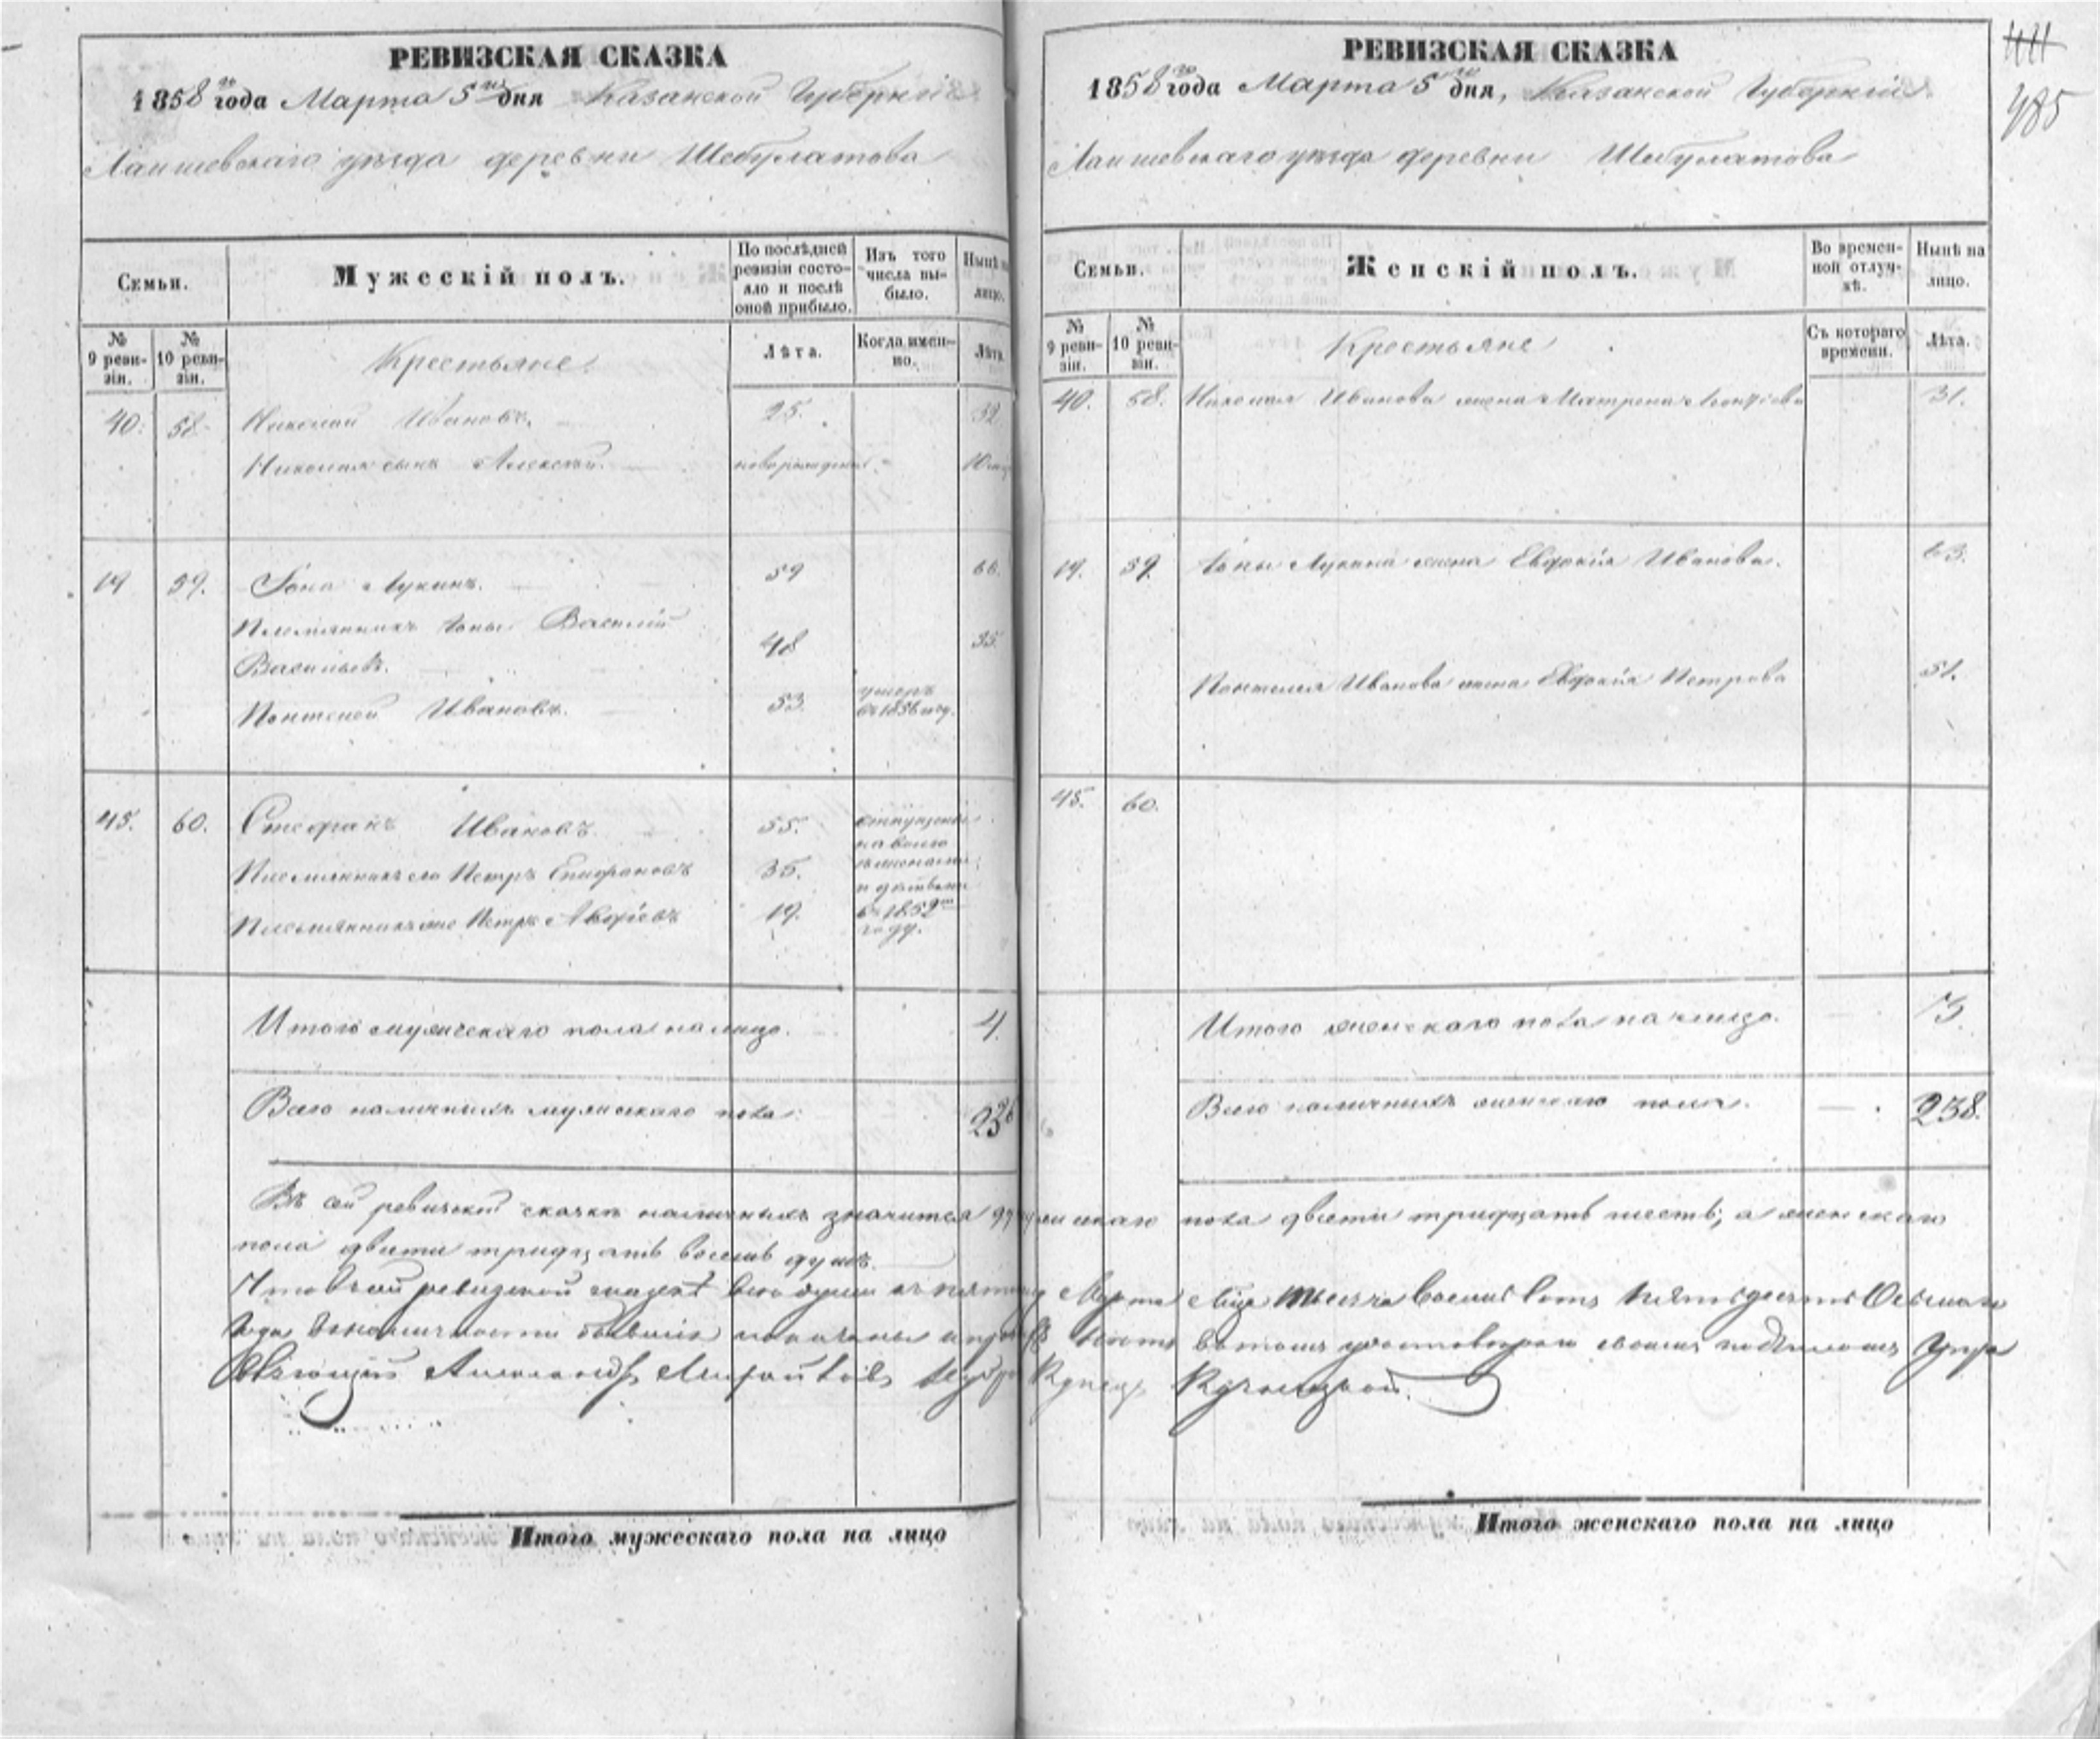 РЕВИЗСКАЯ СКАЗКА
1858го года Марта 5го дня Казанской Губерніи
Лаишевскаго уѣзда деревни Шебулатова
Семьи.
Мужескій полъ.
По послѣдней ревизіи состояло и послѣ оной прибыло.
Изъ того числа выбыло.
Нынѣ на лицо.
№ 9 ревизіи.
№ 10 ревизіи.
Крестьяне
Лѣта.
Когда имен- но.
Лѣта.
40. 58. Николай Ивановъ. 25. 32
Николая сынъ Алексѣй. новорожденъ
19 59. Іона Лукинъ. 59 66.
Племянникъ Іоны Василій
Васильевъ. 48 35
Пантелей Ивановъ. 53. умеръ
въ 1856 году.
45. 60. Стефанъ Ивановъ 55. отпущены
на волю
Племянникъ его Петръ Епифановъ 35. съ женами
и дѣтьми
Племянникъ его Петръ Авдѣевъ 19. въ 1852мъ
году.
Итого мужескаго пола на лицо. 4.
Всего наличныхъ мужескаго пола 236
Итого мужескаго пола на лицо
РЕВИЗСКАЯ СКАЗКА
1858го года Марта 5го дня, Казанской Губерніи
Лаишевскаго уѣзда деревни Шебулатова
485
Семьи.
Женскій полъ.
Во времен- ной отлуч- кѣ.
Нынѣ на лицо.
№ 9 реви- зіи.
№ 10 реви- зіи.
Крестьяне
Съ котораго времени.
Лѣта.
40. 58. Николая Иванова жена Матрена Леонтьева 31.
19. 59. Іоны Лукина жена Евдокія Иванова. 63.
Пантелея Иванова жена Евдокія Петрова 51.
45. 60.
Итого женскаго пола на лицо. 3.
Всего наличныхъ женскаго пола. 238.
Въ сей ревизской сказкѣ наличныхъ значится мужескаго пола двѣсти тридцать шесть, а женскаго
пола двѣсти тридцать восемь душъ.
Что въ сей ревизской сказкѣ всѣ души къ пятому Марта тысяча восемь сотъ пятьдесятъ Осьмаго
года въ томъ удостовѣряю своимъ подписомъ Упра
вляющій Александръ
Итого женскаго пола на лицо